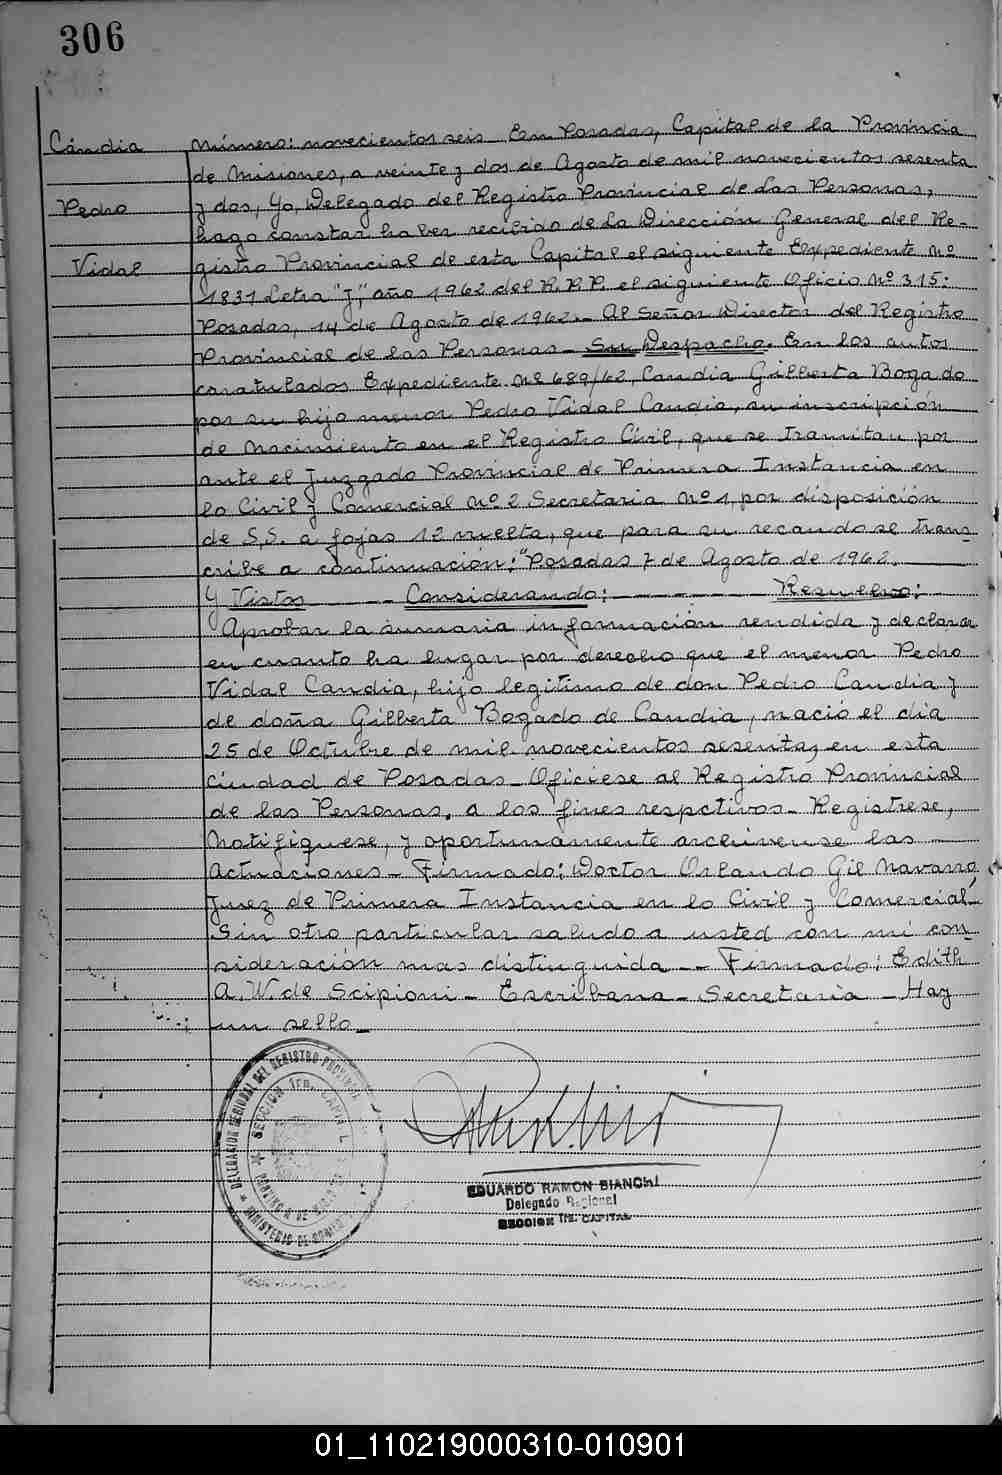 306
Cándia
Pedro
Vidal
Número: novecientos seis En Posadas, Capital de la Provincia
de Misiones, a veinte y dos de Agosto de mil novecientos sesenta
y dos, Yo, Delegado del Registro Provincial de las Personas,
hago constar haber recibido de la Dirección General del Re-
gistro Provincial de esta Capital el siguiente Expediente Nº
1831 Letra "J", año 1962 del R.P.P. el siguiente Oficio Nº 315:
Posadas, 14 de Agosto de 1962.- Al Señor Director del Registro
Provincial de las Personas - Su Despacho. En los autos
caratulados Expediente Nº 689/62, Candia Gilberta Bogado
por su hijo menor Pedro Vidal Candia, su inscripción
de Nacimiento en el Registro Civil, que se tramitan por
ante el Juzgado Provincial de Primera Instancia en
lo Civil y Comercial Nº 2 Secretaria Nº 1, por disposición
de S.S. a fojas 12 vuelta, que para su recaudo se trans-
cribe a continuación: "Posadas 7 de Agosto de 1962.
Y Vistos - - - Considerando: - - - - - Resuelvo:
Aprobar la sumaria información rendida y declarar
en cuanto ha lugar por derecho que el menor Pedro
Vidal Candia, hijo legitimo de don Pedro Candia y
de doña Gilberta Bogado de Candia, nació el dia
25 de Octubre de mil novecientos sesenta, en esta
Ciudad de Posadas - Oficiese al Registro Provincial
de las Personas, a los fines respctivos - Registrese,
Notifiquese, y oportunamente archivense las
Actuaciones - Firmado: Doctor Orlando Gil Navarro
Juez de Primera Instancia en lo Civil y Comercial"
Sin otro particular saludo a usted con mi con-
sideración mas distinguida -- Firmado: Edith
A. W. de Scipioni - Escribana - Secretaria - Hay
un sello -
DELEGACION REGIONAL DEL REGISTRO PROVINCIAL
SECCION 1ra. CAPITAL
MINISTERIO DE
EDUARDO RAMON BIANCHI
Delegado Regional
SECCION 1ra. CAPITAL
01_110219000310-010901